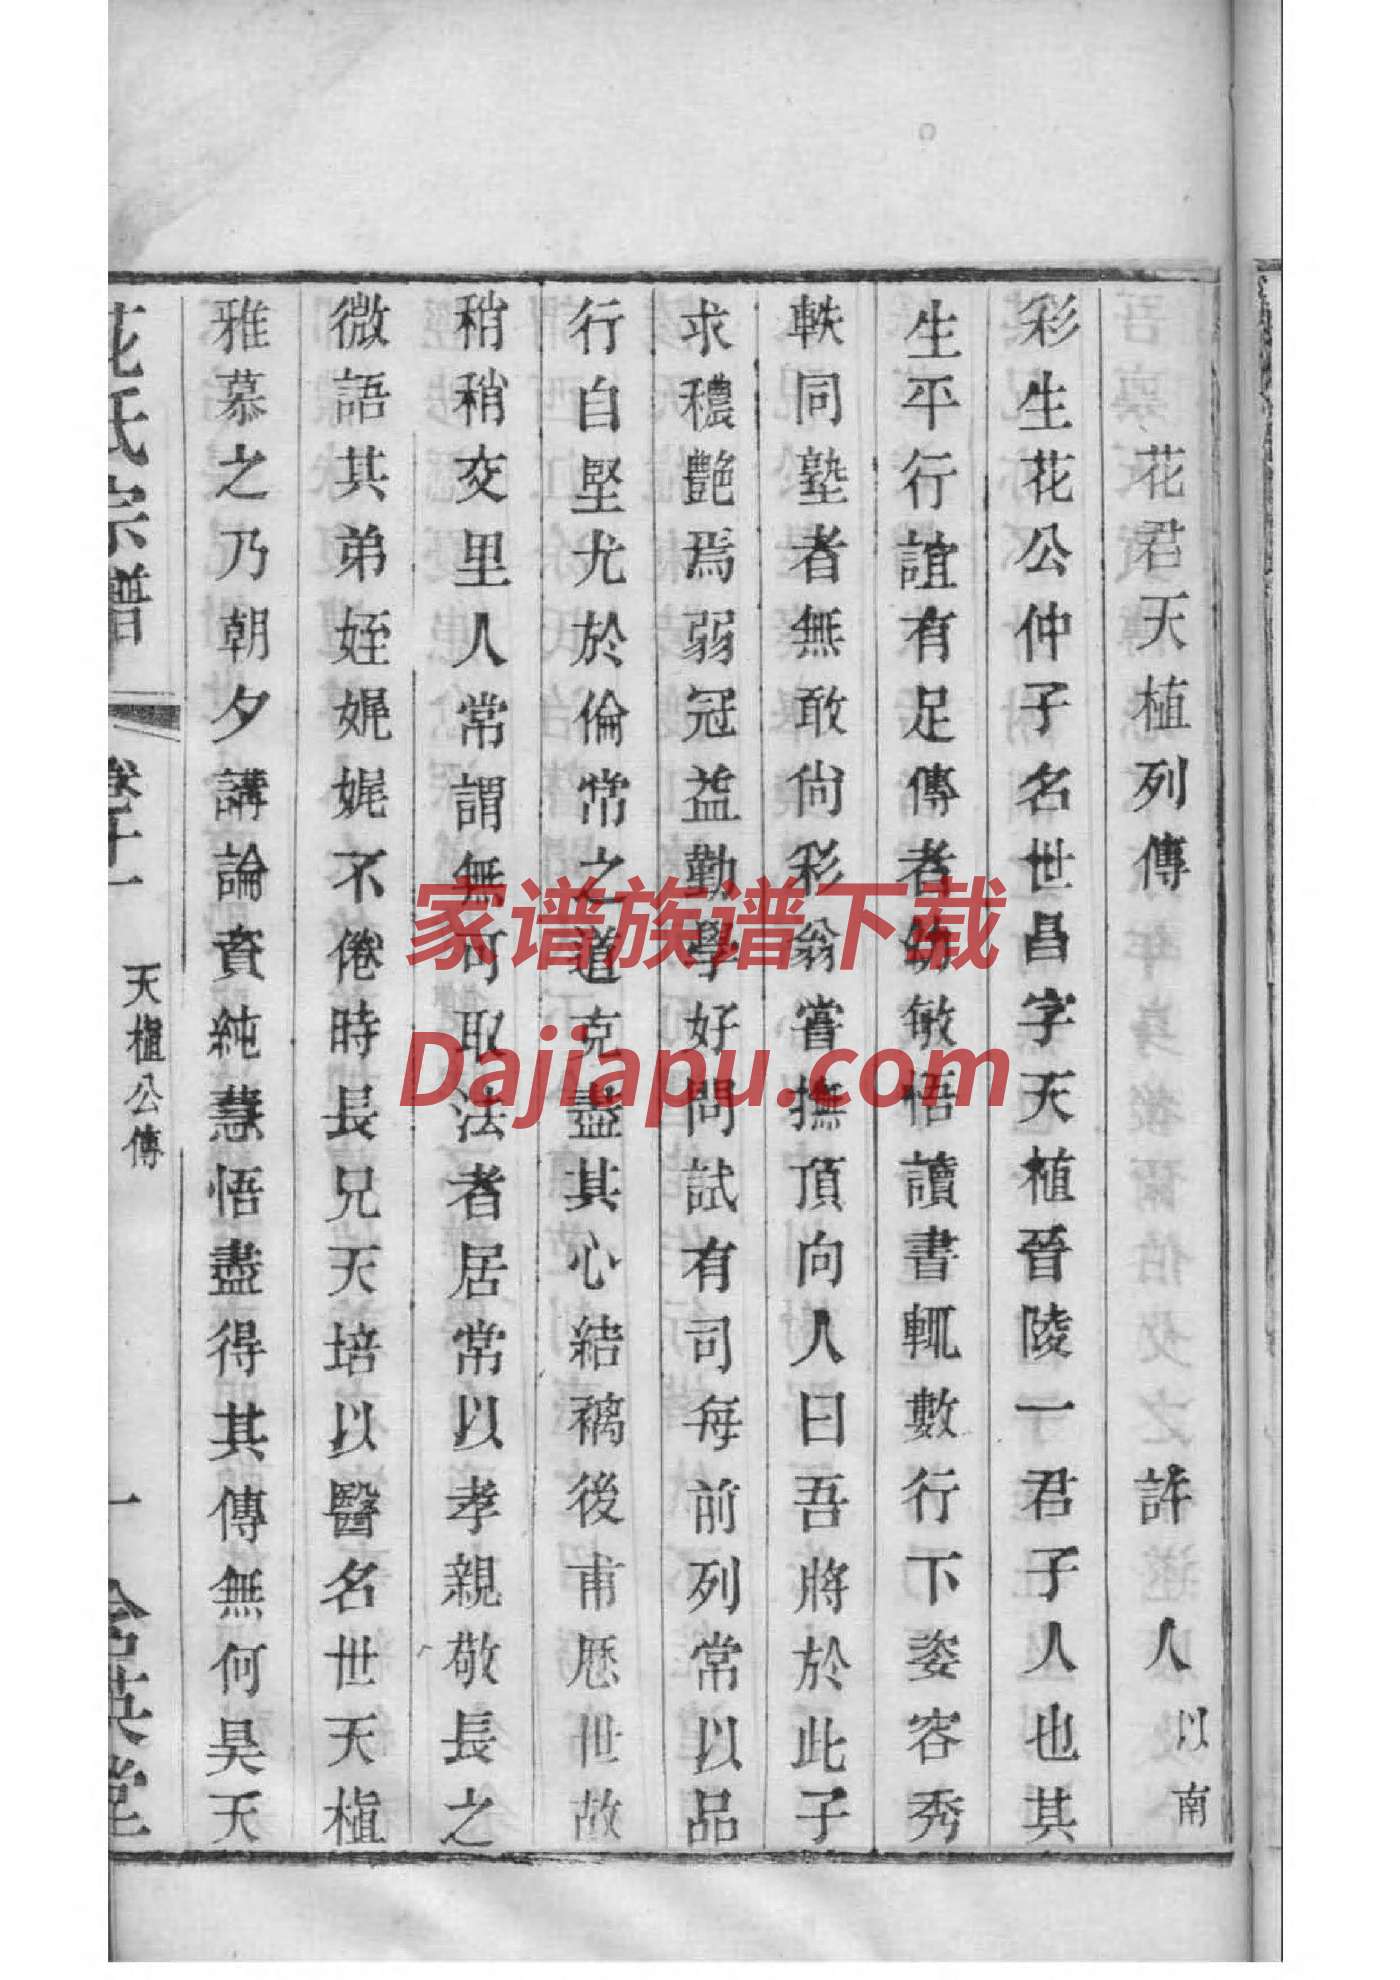 花君天植列傳　許　人以南
彩生花公仲子名世昌字天植晉陵一君子人也其
生平行誼有足傳者幼敏悟讀書輒數行下姿容秀
軼同塾者無敢尙彩翁嘗撫頂向人曰吾將於此子
求穠艶焉弱冠益勤學好問試有司每前列常以品
行自堅尤於倫常之道克盡其心結褵後甫歷世故
稍稍交里人常謂無可取法者居常以孝親敬長之
微語其弟姪娓娓不倦時長兄天培以醫名世天植
雅慕之乃朝夕講論資純慧悟盡得其傳無何昊天
花氏宗譜　卷十一　天植公傳　一　含英堂
家谱族谱下载
Dajiapu.com